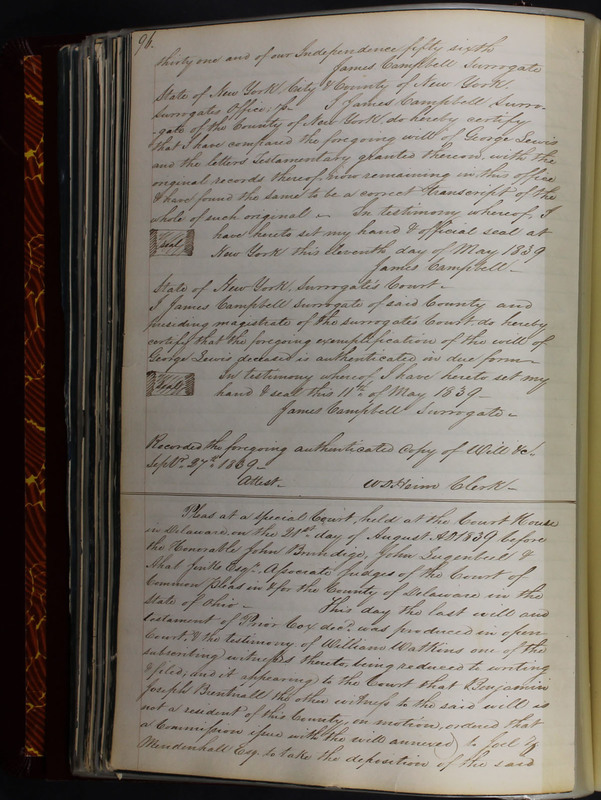 96.
thirty one and of our Independence fifty sixth
James Campbell Surrogate
State of New York, City & County of New York,
Surrogates Office; ss. I James Campbell Surro-
-gate of the County of New York, do hereby certify
that I have compared the foregoing will of George Lewis
and the letters testamentary granted thereon, with the
original records thereof, now remaining in this office
& have found the same to be a correct transcript of the
whole of such original - In testimony whereof, I
have hereto set my hand & official seal at
Seal
New York this eleventh day of May 1839
James Campbell -
State of New York, Surrogate's Court -
I James Campbell Surrogate of said County and
presiding magistrate of the Surrogate's Court, do hereby
certify that the foregoing exemplification of the will of
George Lewis deceased is authenticated in due form -
Seal
In testimony whereof, I have hereto set my
hand & seal this 11th of May 1839 -
James Campbell Surrogate -
Recorded the foregoing authenticated copy of Will &c.
Sept. 27th 1839 -
Attest - W D Heim Clerk -
Pleas at a special Court, held at the Court House
in Delaware, on the 21st day of August AD 1839 before
the Honorable John Brundige, John Lugenbeel &
Ahab Jinks Esqrs. Associate Judges of the Court of
Common Pleas in & for the County of Delaware in the
State of Ohio - This day the last will and
testament of Prior Cox decd. was produced in open
Court & the testimony of William Watkins one of the
subscribing witnesses thereto, being reduced to writing
& filed, and it appearing to the Court that Benjamin
Joseph the other witness to the said will is
not a resident of this County, on motion, ordered that
a Commission issue with the will annexed) to Joel
Mendenhall Esq. to take the deposition of the said